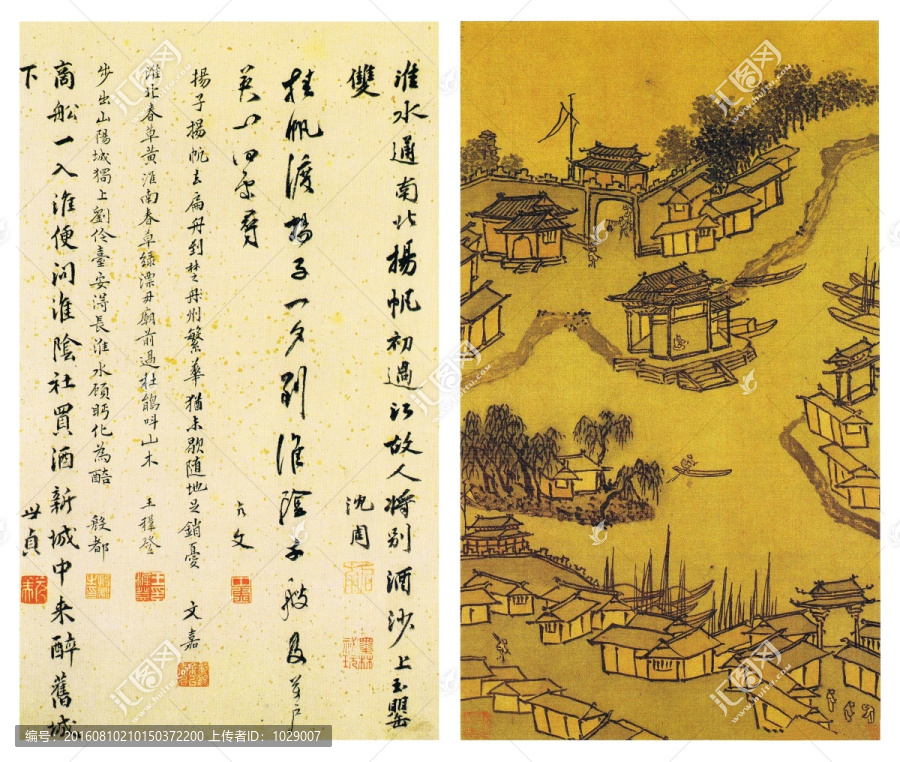 淮水通南北揚帆初過江故人将别酒沙上玉罂
雙
沈周
桂帆渡揚子一夕到淮陰
揚子揚帆去扁舟到楚州繁華猶未歇随地足銷憂
文嘉
淮北春草黄淮南春草緑漂母廟前過杜鵑叫山木
王穉登
步出山陽城獨上劉伶臺安得長淮水顧眄化為醅
殷都
商船一入淮便问淮陰社買酒新城中来醉舊城
下
世貞
编号：20160810210150372200 上传者ID：1029007
汇图网
www.huitu.com